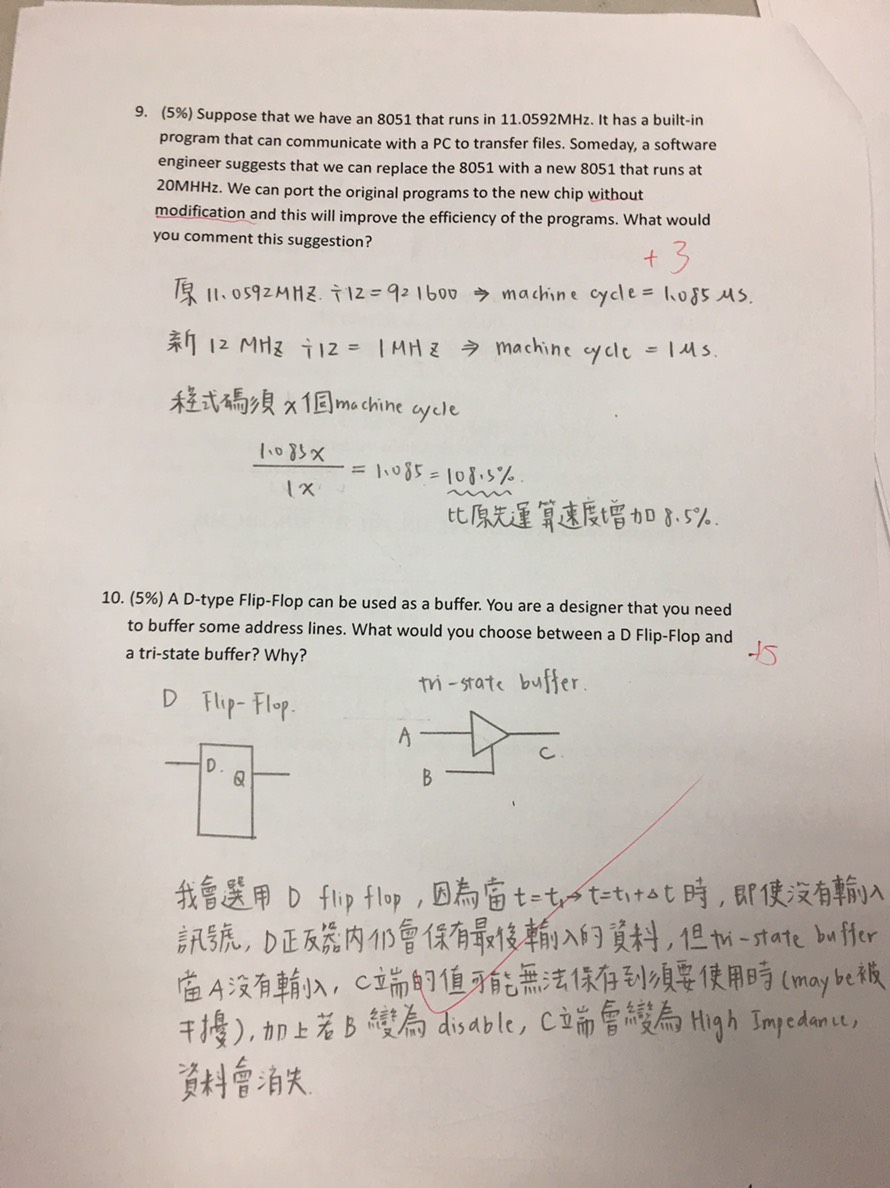 9. (5%) Suppose that we have an 8051 that runs in 11.0592MHz. It has a built-in
program that can communicate with a PC to transfer files. Someday, a software
engineer suggests that we can replace the 8051 with a new 8051 that runs at
20MHHz. We can port the original programs to the new chip without
modification and this will improve the efficiency of the programs. What would
you comment this suggestion?
+3
原 11.0592MHZ. ÷12=921600 ⇒ machine cycle = 1.085 μs.
新 12 MHZ ÷12 = 1MHZ ⇒ machine cycle = 1μs.
程式碼須 x個machine cycle
1.085x
= 1.085 = 108.5%.
1x
比原先運算速度增加 8.5%.
10. (5%) A D-type Flip-Flop can be used as a buffer. You are a designer that you need
to buffer some address lines. What would you choose between a D Flip-Flop and
a tri-state buffer? Why?
+5
D Flip-Flop.
tri-state buffer.
A
C
B
D.
Q
我會選用 D flip flop, 因為當 t=t₁→t=t₁+Δt 時, 即使沒有輸入
訊號, D正反器內仍會保有最後輸入的資料, 但tri-state buffer
當A沒有輸入, C端的值可能無法保存到須要使用時(may be被
干擾), 加上若B變為 disable, C端會變為 High Impedance,
資料會消失.